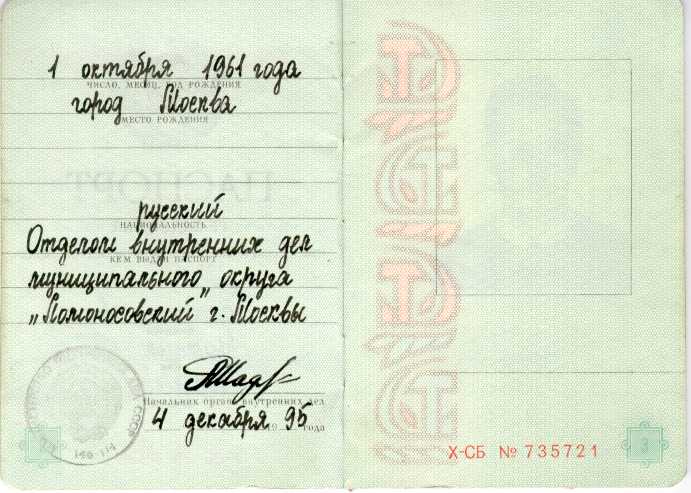 1 октября 1961 года
ЧИСЛО, МЕСЯЦ, ГОД РОЖДЕНИЯ
город Москва
МЕСТО РОЖДЕНИЯ
русский
НАЦИОНАЛЬНОСТЬ
Отделом внутренних дел
КЕМ ВЫДАН ПАСПОРТ
муниципального округа
„Ломоносовский" г. Москвы
Начальник органа внутренних дел
4 декабря 1995 года
146 114
Х-СБ № 735721
3